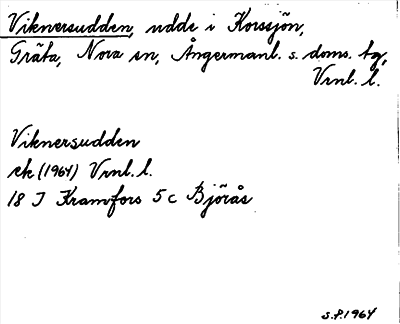 Viknersudden, udde i Korssjön,
Gräta, Nora sn, Ångermanl. s. doms. tg,
Vrnl. l.
Viknersudden
ek (1964) Vrnl. l.
18 I Kramfors 5 c Björås
S.P. 1964